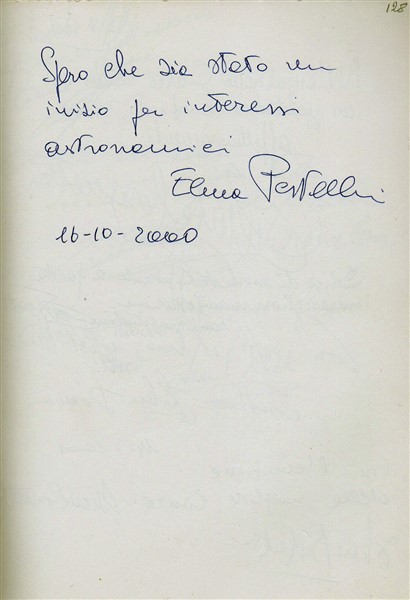 128
Spero che sia stato un
inizio per interessi
astronomici
Elena
16-10-2000